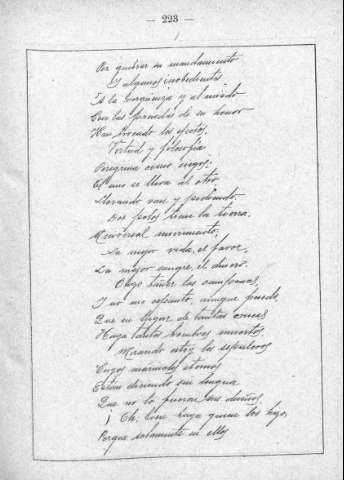 — 223 —
Por quebrar su mandamiento
Y algunos inobedientes
A la vergüenza y al miedo
Con las prendas de su honor
Han trocado los efectos.
Virtud y filosofía
Peregrina como ciegos;
El uno se lleva al otro,
Llorando van y pidiendo.
Dos polos tiene la tierra.
Universal movimiento,
La mejor vida, el favor,
La mejor sangre, el dinero.
Oigo tañer las campanas,
Y no me espanto, aunque puedo,
Que en lugar de tantas cruces
Haya tantos hombres muertos
Mirando estoy los sepulcros
Cuyos mármoles eternos
Están diciendo sin lengua
Que no lo fueron sus dueños.
¡Oh, bien haya quien los hizo,
Porque solamente en ellos